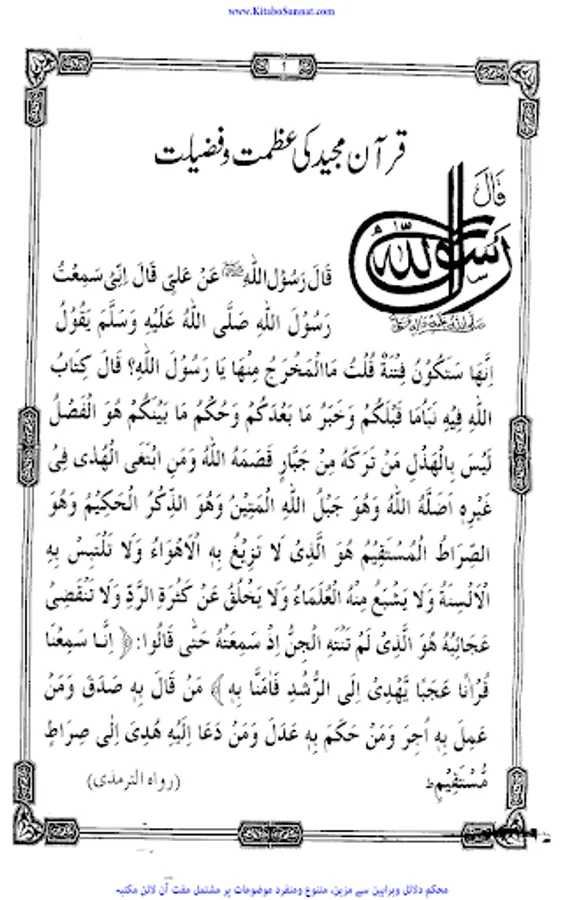 www.KitaboSunnat.com
قرآن مجید کی عظمت و فضیلت
قَالَ
رَسُوْلُ اللّٰه
صَلَّى اللّٰهُ عَلَيْهِ وَاٰلِهٖ وَسَلَّمَ
قَالَ رَسُوْلُ اللّٰهِ ﷺ عَنْ عَلِيٍّ قَالَ اِنِّيْ سَمِعْتُ
رَسُوْلَ اللهِ صَلَّى اللهُ عَلَيْهِ وَسَلَّمَ يَقُوْلُ
اِنَّهَا سَتَكُوْنُ فِتْنَةٌ قُلْتُ مَاالْمَخْرَجُ مِنْهَا يَا رَسُوْلَ اللهِ؟ قَالَ كِتَابُ
اللهِ فِيْهِ نَبَأُمَا قَبْلَكُمْ وَخَبَرُ مَا بَعْدَكُمْ وَحُكْمُ مَا بَيْنَكُمْ هُوَ الْفَصْلُ
لَيْسَ بِالْهَذْلِ مَنْ تَرَكَهُ مِنْ جَبَّارٍ قَصَمَهُ اللهُ وَمَنِ ابْتَغَى الْهُدٰى فِيْ
غَيْرِهٖ اَضَلَّهُ اللهُ وَهُوَ حَبْلُ اللهِ الْمَتِيْنُ وَهُوَ الذِّكْرُ الْحَكِيْمُ وَهُوَ
الصِّرَاطُ الْمُسْتَقِيْمُ هُوَ الَّذِيْ لَا تَزِيْغُ بِهِ الْاَهْوَاءُ وَلَا تَلْتَبِسُ بِهِ
الْاَلْسِنَةُ وَلَا يَشْبَعُ مِنْهُ الْعُلَمَاءُ وَلَا يَخْلَقُ عَنْ كَثْرَةِ الرَّدِّ وَلَا تَنْقَضِيْ
عَجَائِبُهُ هُوَ الَّذِيْ لَمْ تَنْتَهِ الْجِنُّ اِذْ سَمِعَتْهُ حَتّٰى قَالُوا: ﴿ اِنَّا سَمِعْنَا
قُرْاٰنًا عَجَبًا يَّهْدِيْ اِلَى الرُّشْدِ فَاٰمَنَّا بِهٖ ﴾ مَنْ قَالَ بِهٖ صَدَقَ وَمَنْ
عَمِلَ بِهٖ اُجِرَ وَمَنْ حَكَمَ بِهٖ عَدَلَ وَمَنْ دَعَا اِلَيْهِ هُدِيَ اِلٰى صِرَاطٍ
مُّسْتَقِيْمٍ ط
(رواه الترمذى)
محکم دلائل وبراہین سے مزین، متنوع ومنفرد موضوعات پر مشتمل مفت آن لائن مکتبہ